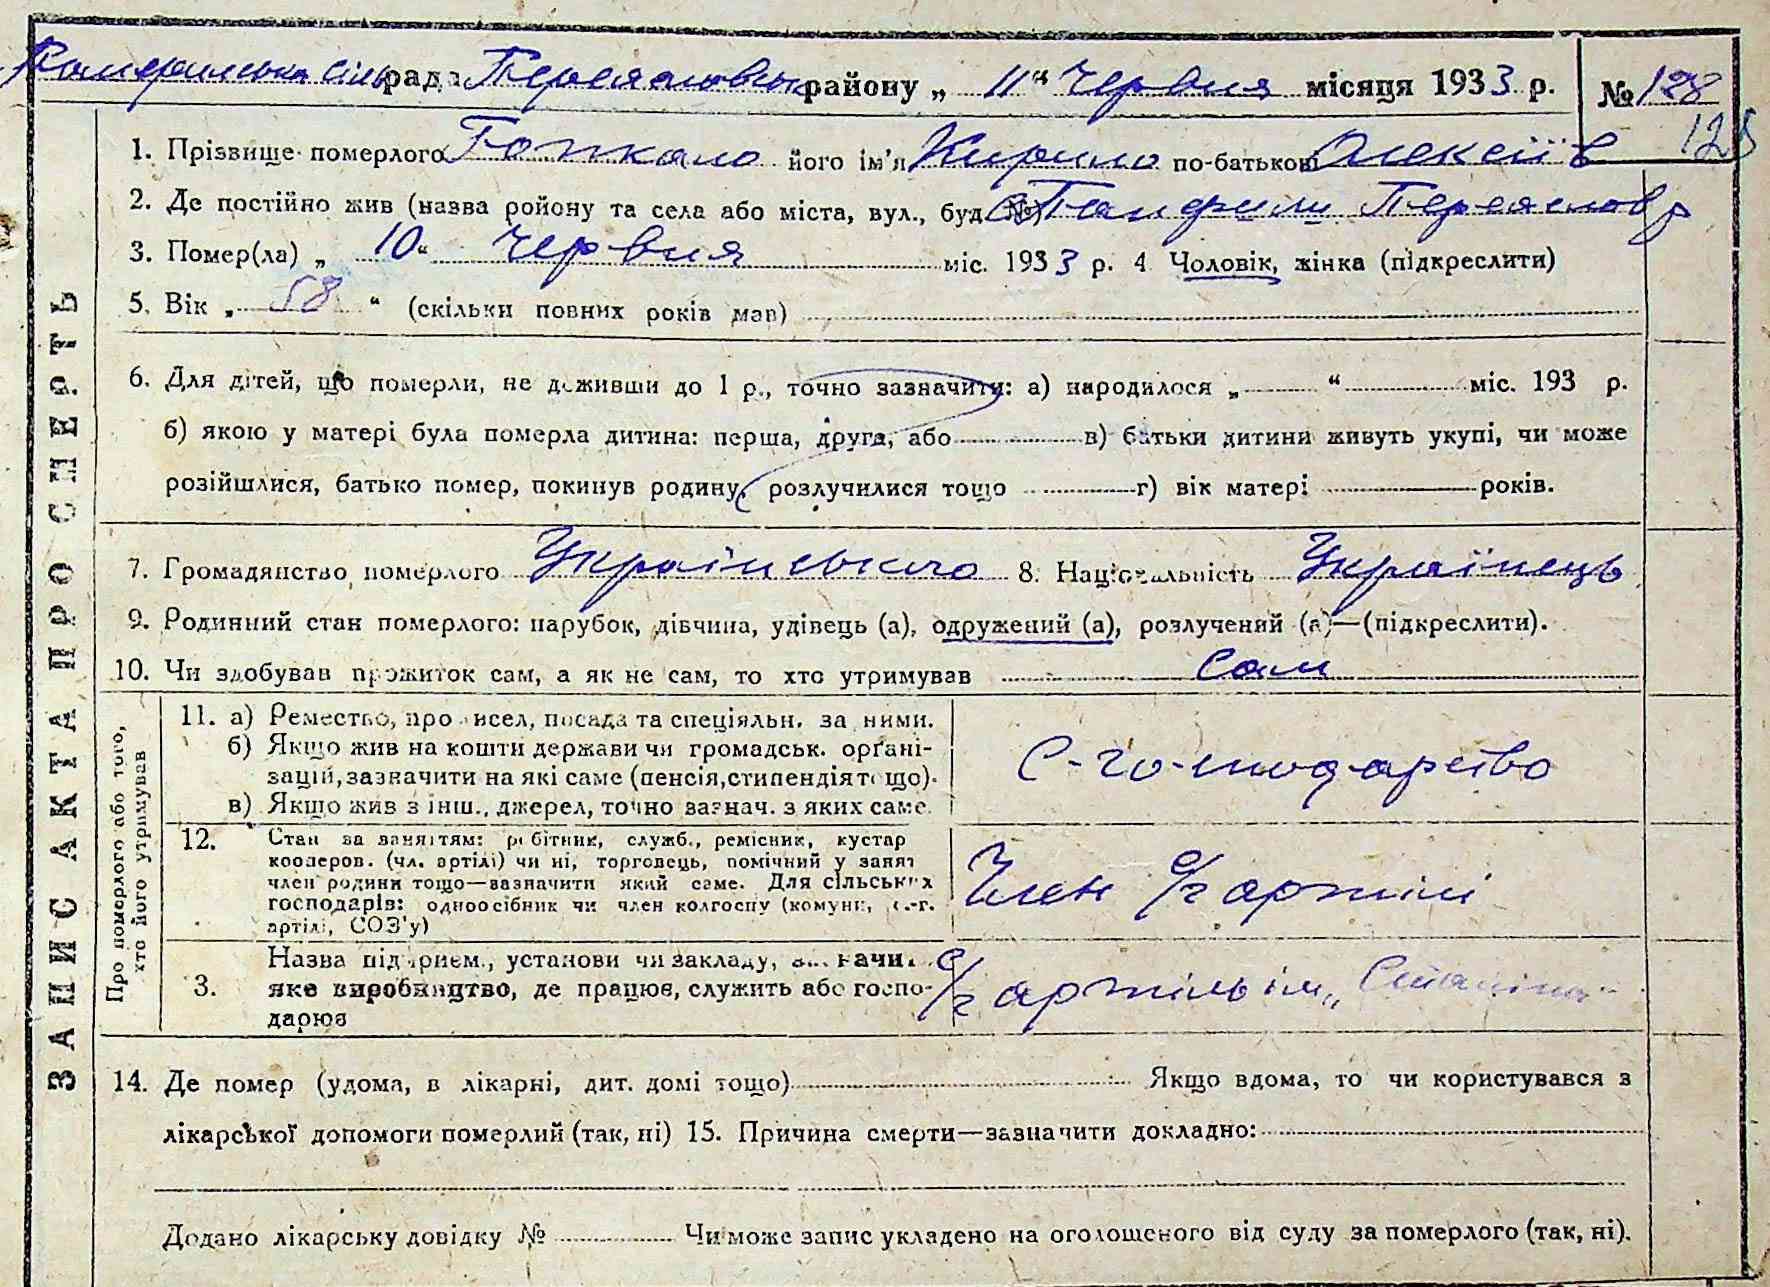 Панфильська сільрада Переяславськ району „ 11 “ Червня місяця 1933 р. № 128
128
1. Прізвище померлого Гопкало його ім'я Кирило по-батькові Олексіїв
2. Де постійно жив (назва ройону та села або міста, вул., буд. №) с Панфили Переяслав р
3. Помер(ла) „ 10 “ Червня міс. 1933 р. 4 Чоловік, жінка (підкреслити)
5. Вік „ 58 “ (скільки повних років мав)
6. Для дітей, що померли, не доживши до 1 р., точно зазначити: а) народилося „ “ міс. 193 р.
б) якою у матері була померла дитина: перша, друга, або в) батьки дитини живуть укупі, чи може
розійшлися, батько помер, покинув родину, розлучилися тощо г) вік матері років.
7. Громадянство померлого Українського 8. Національність Українець
9. Родинний стан померлого: парубок, дівчина, удівець (а), одружений (а), розлучений (а)—(підкреслити).
10. Чи здобував прожиток сам, а як не сам, то хто утримував сам
ЗАПИС АКТА ПРО СМЕРТЬ
Про померлого або того,
хто його утримував
11. а) Ремество, промисел, посада та спеціяльн. за ними.
б) Якщо жив на кошти держави чи громадськ. орґані-
зацій, зазначити на які саме (пенсія, стипендія тощо).
в) Якщо жив з інш., джерел, точно зазнач. з яких саме.
С-господарство
12. Стан за заняттям: робітник, служб., ремісник, кустар
кооперов. (чл. артілі) чи ні, торговець, помічний у занят
член родини тощо—зазначити який саме. Для сільських
господарів: одноосібник чи член колгоспу (комуни, с.-г.
артілі, СОЗ'у)
Член с/г артілі
3. Назва підприєм., установи чи закладу, зазначити
яке виробництво, де працює, служить або госпо-
дарює
с/г артіль ім „Сталіна“
14. Де помер (удома, в лікарні, дит. домі тощо) Якщо вдома, то чи користувався з
лікарської допомоги померлий (так, ні) 15. Причина смерти—зазначити докладно:
Додано лікарську довідку № Чи може запис укладено на оголошеного від суду за померлого (так, ні).